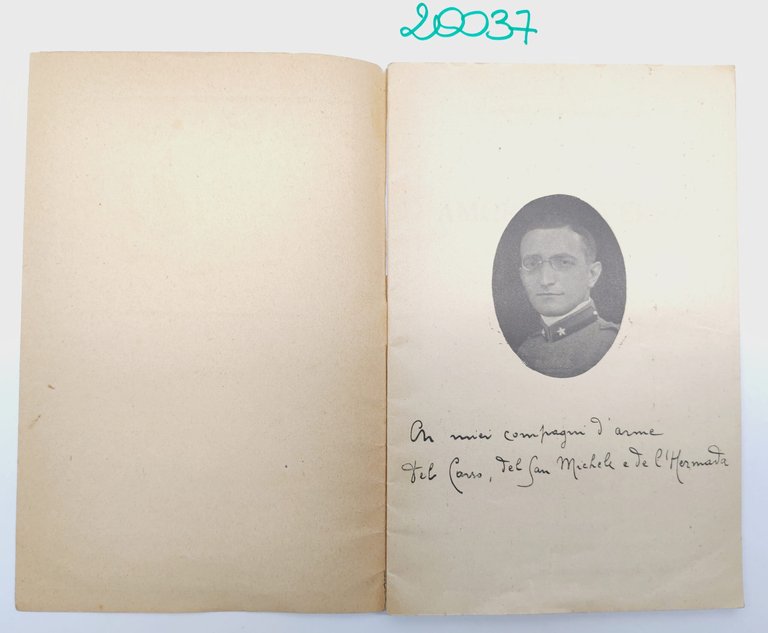 20037
Ai miei compagni d'arme
del Carso, del San Michele e de l'Hermada